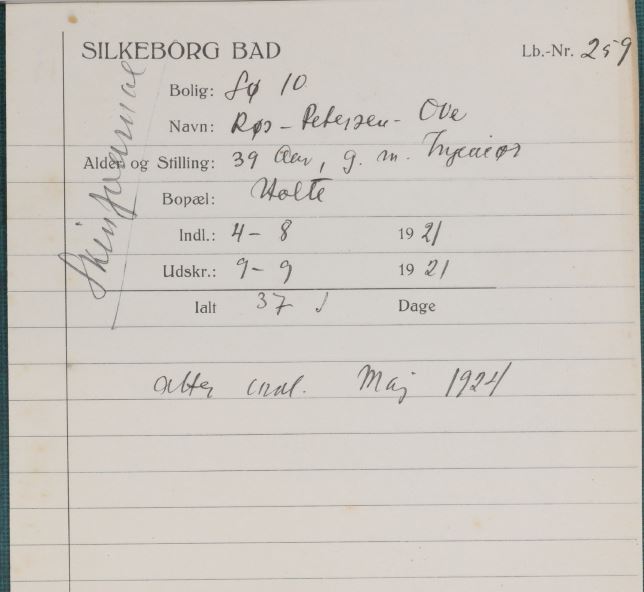 SILKEBORG BAD Lb.-Nr. 259
Bolig: Sø 10
Navn: Røs-Petersen-Ove
Alder og Stilling: 39 Aar, g. m. Ingeniør
Bopæl: Holte
Indl.: 4-8 1921
Udskr.: 9-9 1921
Ialt 37 Dage
atter indl. Maj 1924